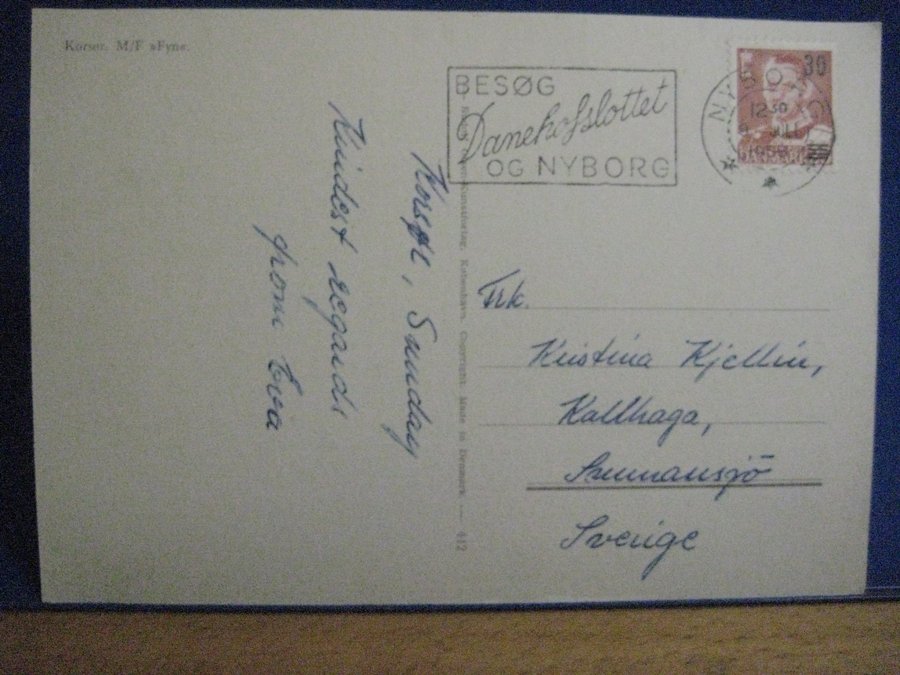 Korsør. M/F »Fyn«.
BESØG
Danehofslottet
OG NYBORG
30
NYBORG
12 30
JULI
Korsør, Sunday
Kindest regards
from Eva
København. Copyright. Made in Denmark — 612
Frk.
Kristina Kjellin,
Kallhaga,
Saxmansjö
Sverige